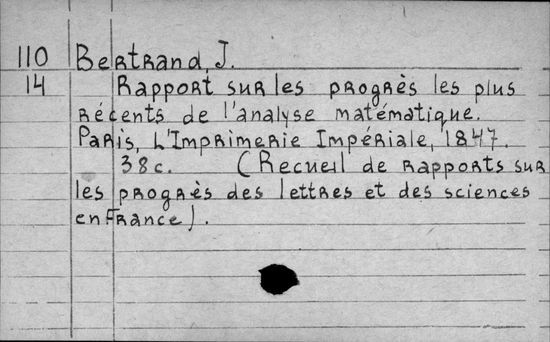 110 Bertrand, J.
14 Rapport sur les progrès les plus
récents de l'analyse matématique.
Paris, L'Imprimerie Impériale, 1847.
38c. (Recueil de rapports sur
les progrès des lettres et des sciences
en France).